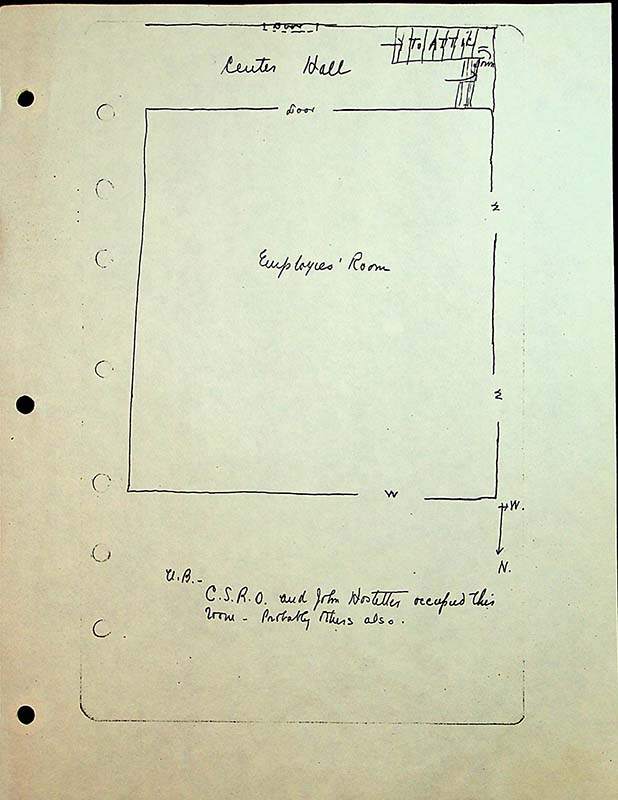 Door
TO ATTIC
Down
Center Hall
Door
W
Employees' Room
W
W
W.
N.
N.B.-
C.S.R.O. and John Hostetter occupied this
room - Probably others also.